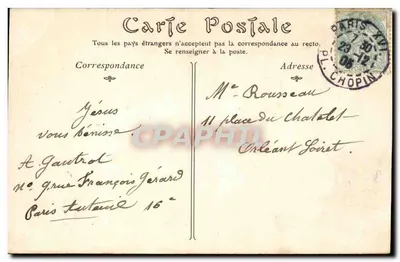 Carte Postale
Tous les pays étrangers n'acceptent pas la correspondance au recto.
Se renseigner à la poste.
Correspondance
Adresse
PARIS XVI
7 30
23 12
06
PL. CHOPIN
Jésus
vous bénisse.
A. Gautrot
n° 9 rue François Gérard
Paris Auteuil 16e
Me Rousseau
11 place du Chatelet
Orléans Loiret.
CPAPHIL